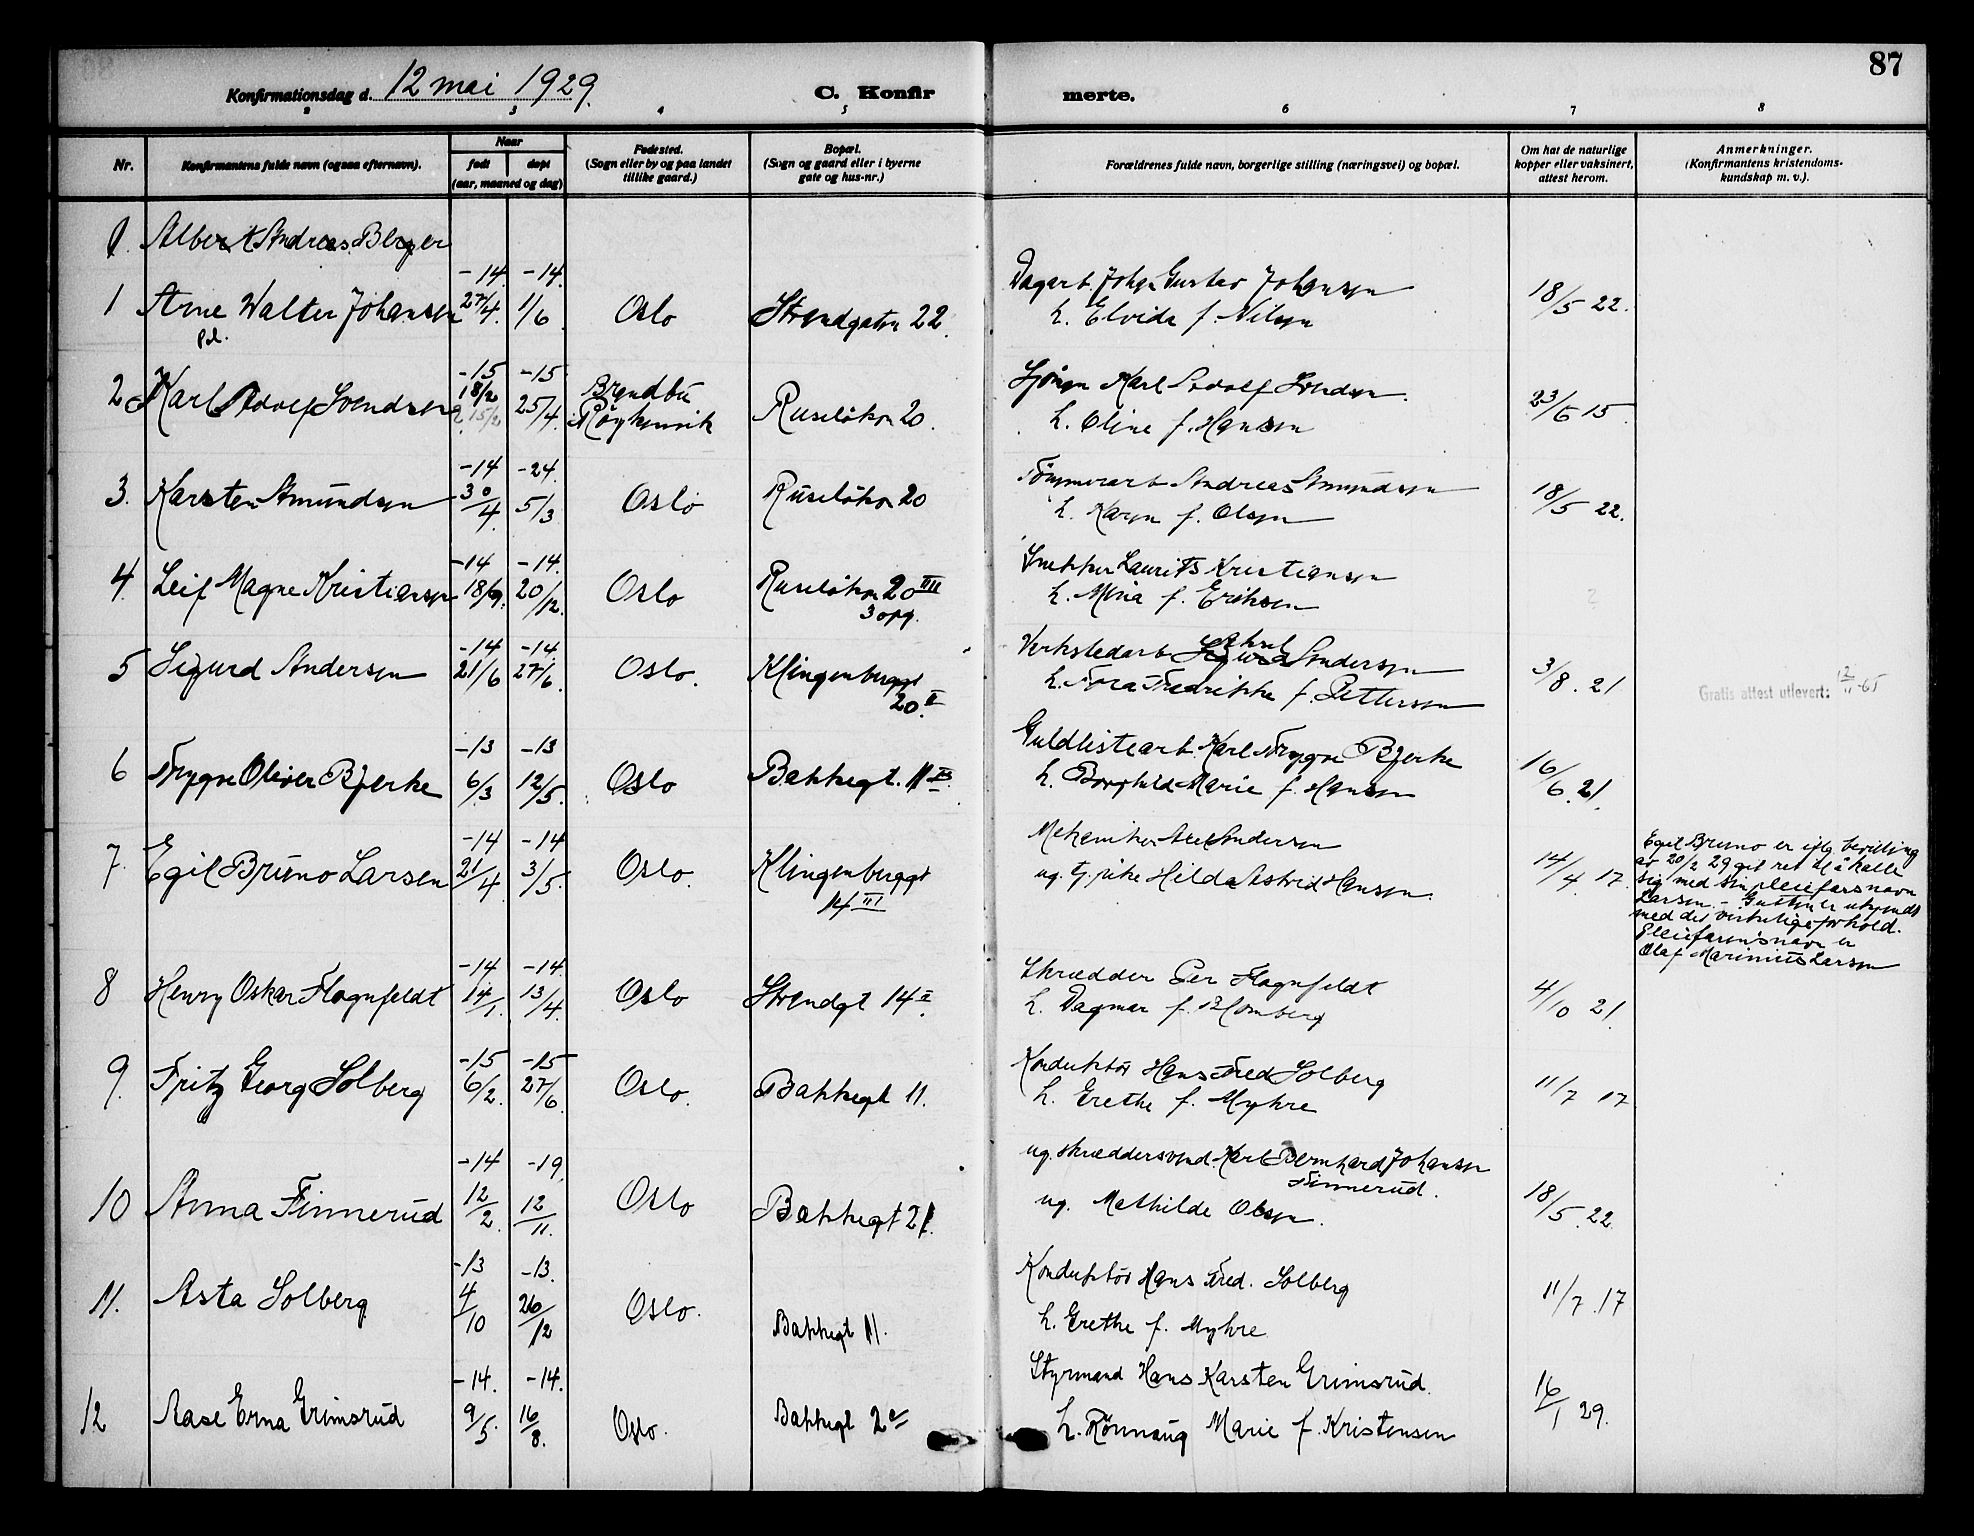 87
Konfirmationsdag d. 12 mai 1929.
C. Konfir merte.
2 3 4 5 6 7 8
Nr.
Konfirmantens fulde navn (ogsaa efternavn).
Naar
født døpt
(aar, maaned og dag)
Fødested.
(Sogn eller by og paa landet
tillike gaard.)
Bopæl.
(Sogn og gaard eller i byerne
gate og hus-nr.)
Forældrenes fulde navn, borgerlige stilling (næringsvei) og bopæl.
Om har de naturlige
kopper eller vaksinert,
attest herom.
Anmerkninger.
(Konfirmantens kristendoms-
kundskap m. v.).
1. Albert Andreas Berger
-14 -14
1 Arne Walter Johansen 27/4. 1/6. Oslo Strandgaten 22.
Dagarb. Johan Gustav Johansen
h. Elvida f. Nilsen
18/5 22.
-15 -15
2 Karl Adolf Svendsen 18/2 25/4. Brandbu
15/2 Røykenvik Ruseløkvn 20.
Sjømn Karl Adolf Svendsen.
h. Oline f. Hansen
23/6 15.
-14 -24.
3. Karsten Amundsen 30/4. 5/3 Oslo Ruseløkvn 20
Tømmerarb Andreas Amundsen
h. Karen f. Olsen
18/5 22.
-14 -14.
4. Leif Magne Kristiansen 18/9. 20/12. Oslo Ruseløkvn 20 IIII
3 opg.
Snekker Laurits Kristiansen
h. Mina f. Eriksen
-14 -14
5 Sigurd Andersen 21/6 27/6. Oslo. Klingenberggt
20. II
Verkstedarb Sigurd Andersen
h. Tora Fredrikke f. Pettersen
3/8. 21.
Gratis attest utlevert: 12/11-65
-13 -13
6 Trygve Oliver Bjerke 6/3 12/5. Oslo Bakkegt. 11 III.
Guldlistearb. Karl Trygve Bjerke
h. Borghild Marie f. Hansen
16/6. 21.
-14 -14
7. Egil Bruno Larsen 21/4. 3/5. Oslo. Klingenberggt
14 III
Mekaniker Axel Andersen
ug. G. pike Hilda Astrid Hansen.
14/4 17.
Egil Bruno er iflg. bevilling
av 20/2 29 git ret til å kalle
sig med sin pleiefars navn
Larsen. – Gutten er ukjendt
med det virkelige forhold.
Pleiefarens navn er
Olaf Marinius Larsen
-14 -14.
8 Henry Oskar Flognfeldt 14/1. 13/4. Oslo Strandgt 14 II.
Skrædder Per Flognfeldt
h. Dagmar f. Blomberg
4/10 21.
-15 -15
9. Fritz Georg Solberg 6/2. 27/6. Oslo. Bakkegt 11.
Konduktør Hans Fred Solberg
h. Grethe f. Myhre
11/7 17
-14 -19.
10 Anna Finnerud 12/2. 12/11. Oslo Bakkegt 21.
ug. skræddersvend. Karl Bernhard Johansen
Finnerud.
ug. Mathilde Olsen.
18/5. 22.
-13 -13.
11. Asta Solberg 4/10 26/12 Oslo. Bakkegt 11.
Konduktør Hans Fred. Solberg
h. Grethe f. Myhre
11/7. 17
-14. -14.
12 Aase Erna Grimsrud 9/5. 16/8. Oslo. Bakkegt 2
Styrmand Hans Karsten Grimsrud.
h. Rønnaug Marie f. Kristensen
16/1 29.